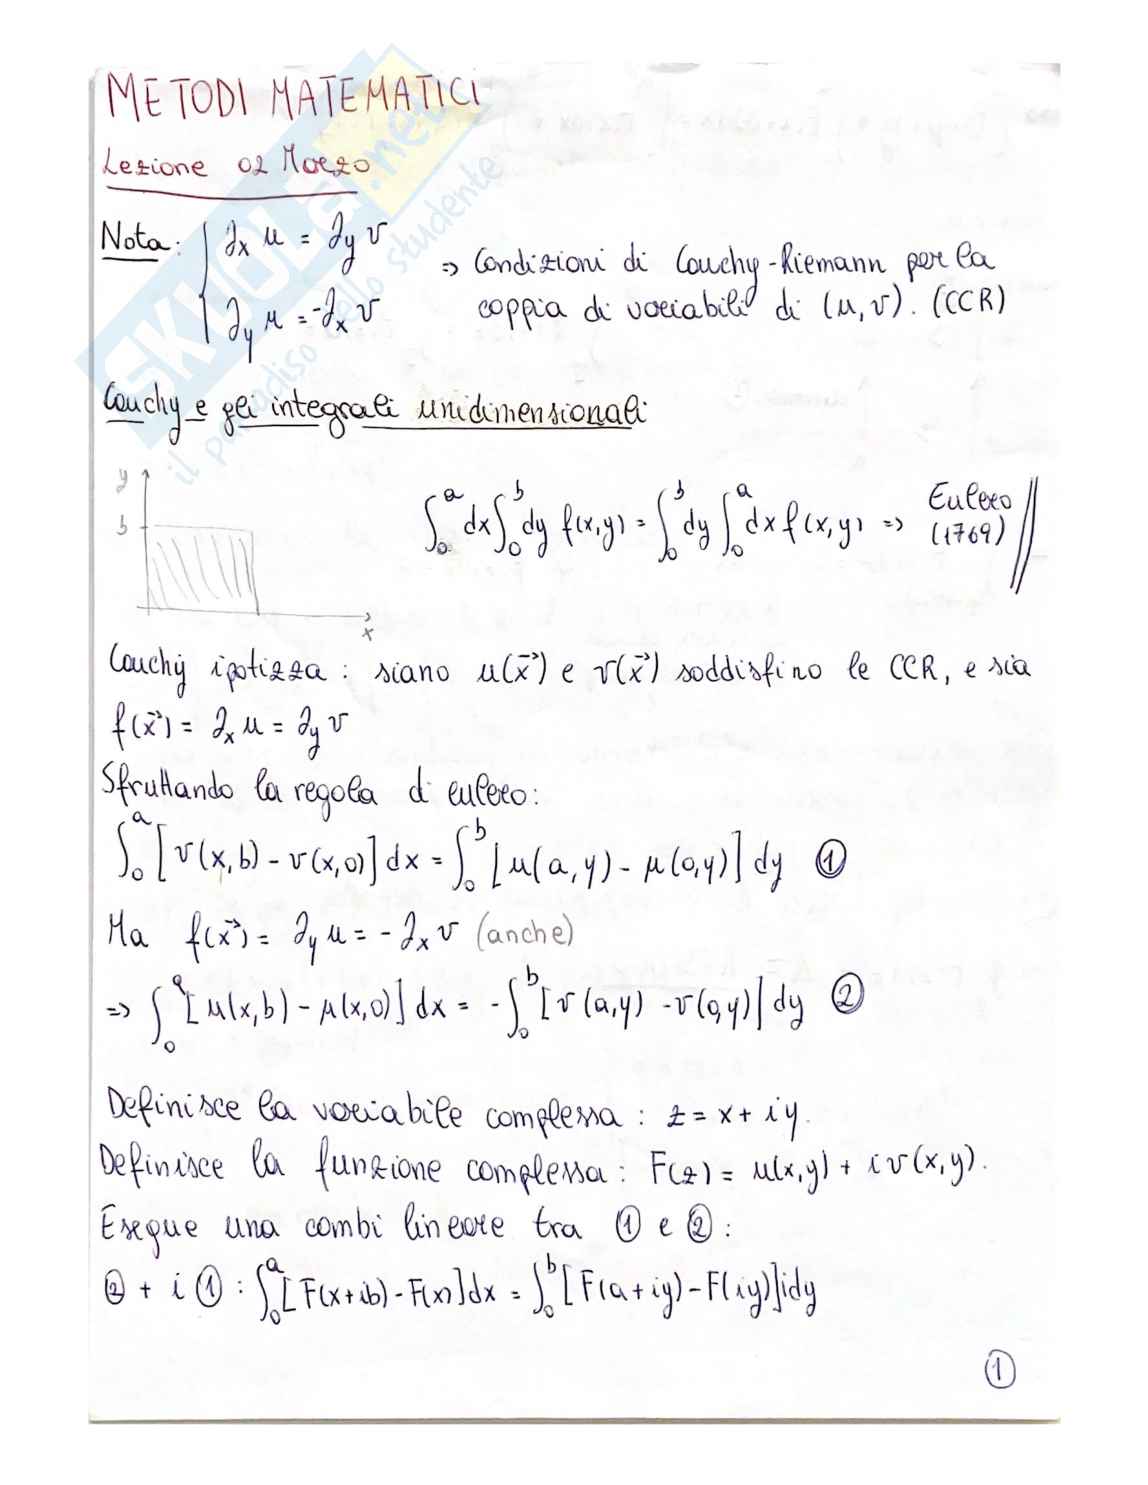 METODI MATEMATICI
Lezione 02 Marzo
Nota: { ∂x u = ∂y v
∂y u = -∂x v
=> Condizioni di Cauchy-Riemann per la
coppia di variabili di (u,v). (CCR)
Cauchy e gli integrali unidimensionali
y
b
x
∫₀ᵃ dx ∫₀ᵇ dy f(x,y) = ∫₀ᵇ dy ∫₀ᵃ dx f(x,y) => Eulero
(1769)
Cauchy ipotizza: siano u(x⃗) e v(x⃗) soddisfino le CCR, e sia
f(x⃗) = ∂x u = ∂y v
Sfruttando la regola di eulero:
∫₀ᵃ [v(x,b) - v(x,0)] dx = ∫₀ᵇ [u(a,y) - u(0,y)] dy ①
Ma f(x⃗) = ∂y u = -∂x v (anche)
=> ∫₀ᵃ [u(x,b) - u(x,0)] dx = -∫₀ᵇ [v(a,y) - v(0,y)] dy ②
Definisce la variabile complessa: z = x + iy.
Definisce la funzione complessa: F(z) = u(x,y) + iv(x,y).
Esegue una combi lineare tra ① e ②:
② + i ①: ∫₀ᵃ [F(x+ib) - F(x)] dx = ∫₀ᵇ [F(a+iy) - F(iy)] i dy
①
SKUOLA.net
il paradiso dello studente